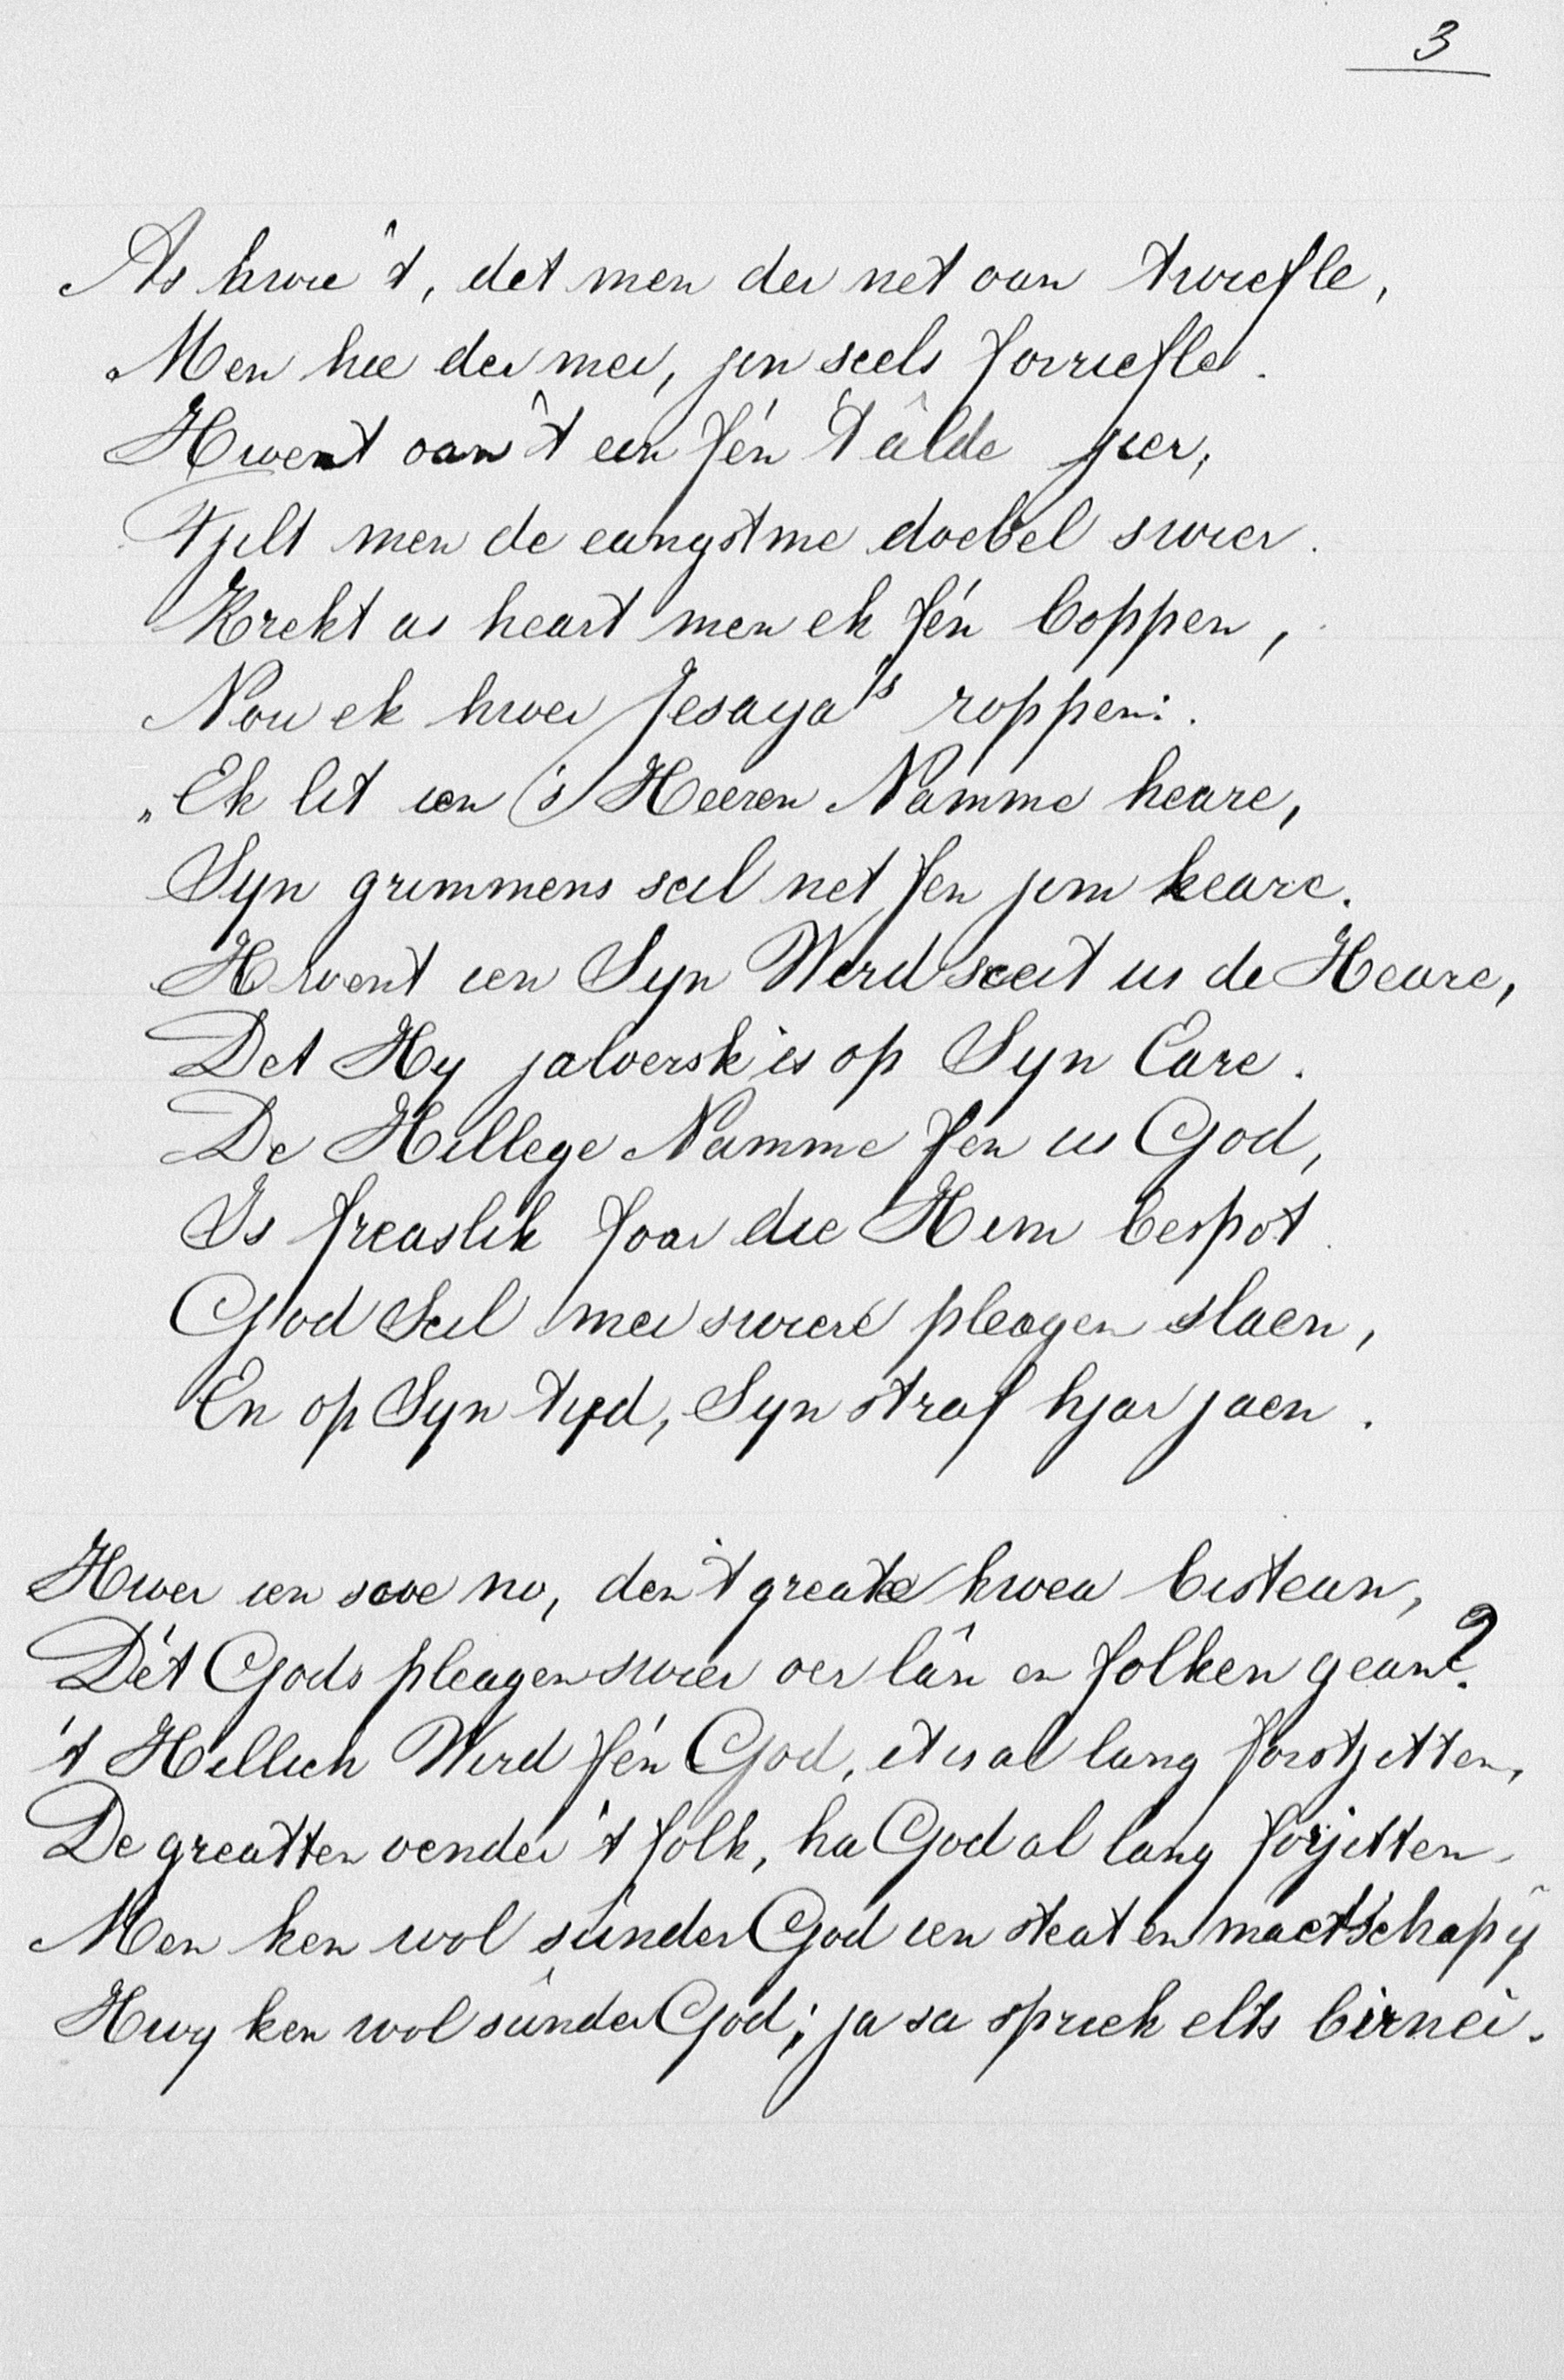 3
As hwie 't, det men der net oan twiefle,
Men hie der mei, jin seels forriefle.
Hwent oan 't ein fén 't âlde jier,
Fjilt men de eangstme doebel swier.
Krekt as heart men ek fén boppen,
Nou ek hwer Jesaya's roppen:
„Ek lit ien 's Heeren Namme heare,
Syn grimmens scil net fen jim keare.
Hwent ien Syn Wird sceit us de Heare,
Det Hy jaloersk is op Syn Eare.
De Hillege Namme fén us God,
Is freaslik foar die Him bespot.
God Scil mei swiere pleagen slaen,
En op Syn tyd, Syn straf hjar jaen.
Hwer ien scoe no, den 't greate kwea bistean,
Dét Gods pleagen swier oer lân en folken gean?
't Hillich Wird fén God, it is al lang forstjitten,
De greatten oender 't folk, ha God al lang forjitten.
Men ken wol sûnder God ien steat en maetschapij
Hwy ken wol sûnder God; ja sa spriek elts birnei.